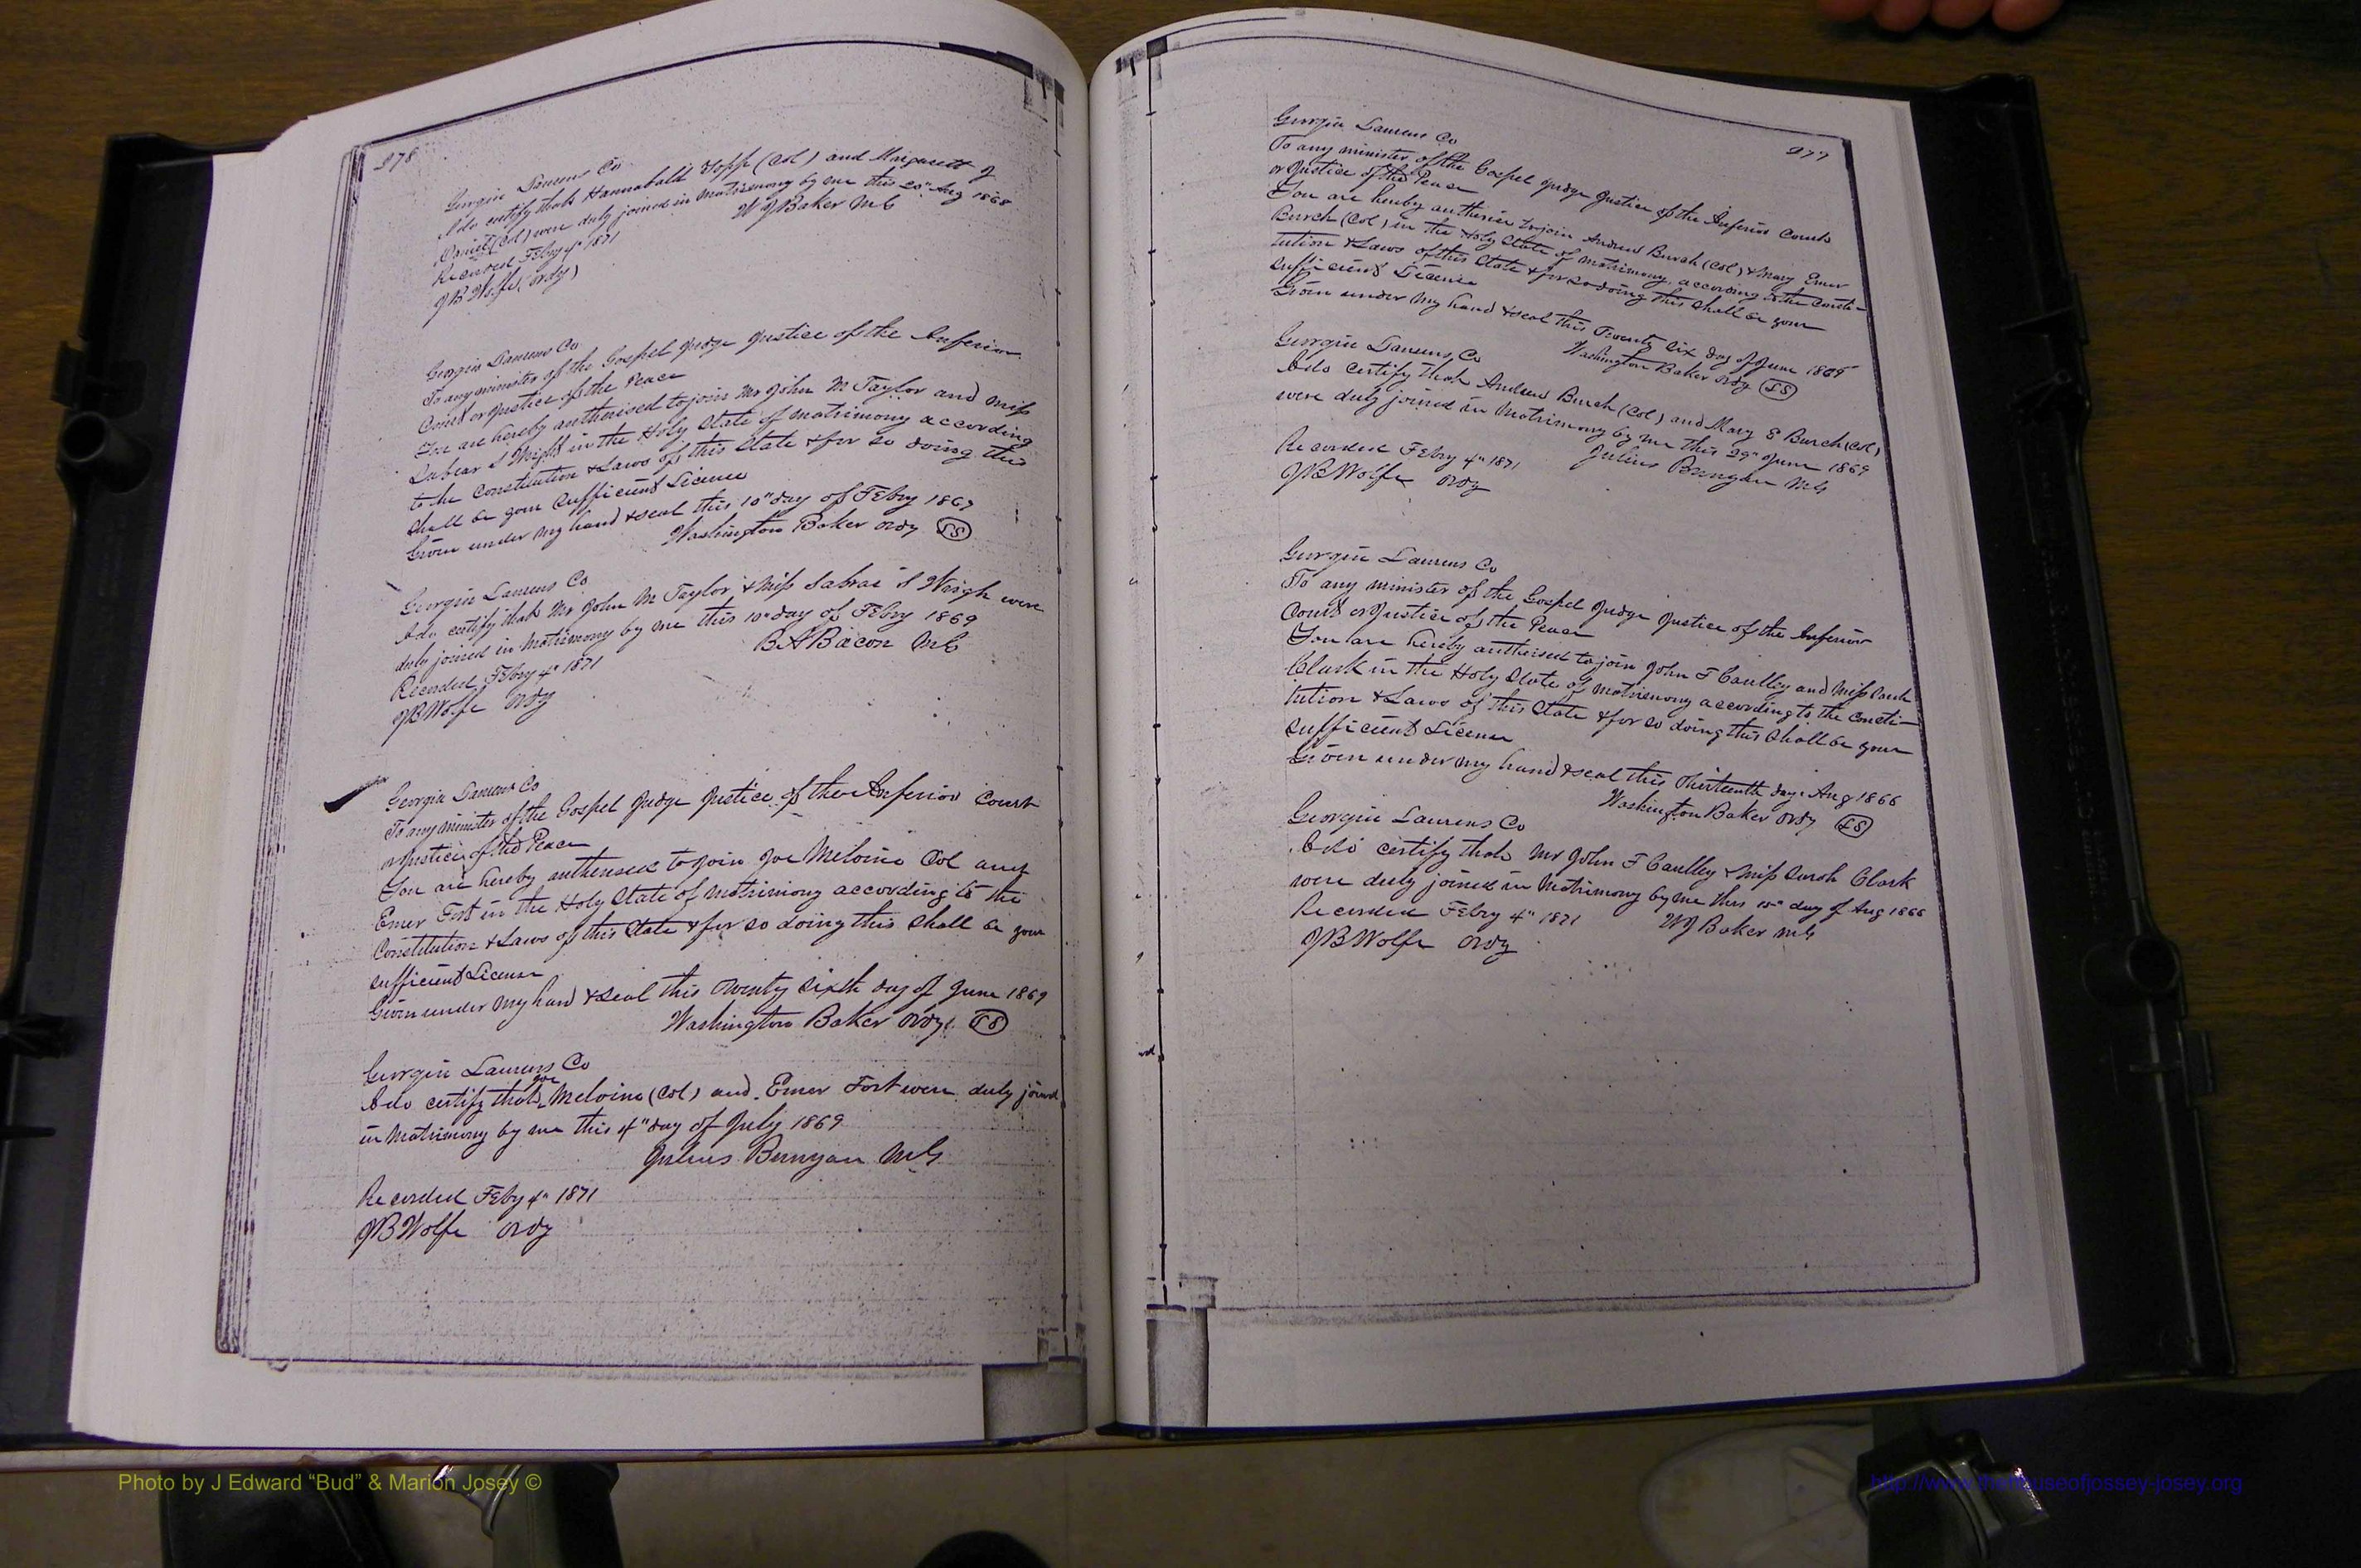 278
Georgia Laurens Co
I do certify that Hannabald Topp (Col) and Margarett J
Daniel (Col) were duly joined in Matrimony by me this 20" Aug 1868
W J Baker M G
Recorded Febry 4" 1871
J B Wolfe (Ordy)
Georgia Laurens Co
To any minister of the Gospel Judge Justice of the Inferior
Court or Justice of the Peace
You are hereby autherised to join Mr John M Taylor and Miss
S Wright in the Holy State of Matrimony according
to the Constitution & Laws of this State & for so doing this
Shall be your Sufficient License
Given under my hand & seal this 10" day of Febry 1869
Washington Baker Ordy LS
Georgia Laurens Co
I do certify that Mr John M Taylor & Miss S Wrigh were
duly joined in Matrimony by me this 10" day of Febry 1869
B A Bacon M G
Recorded Febry 4" 1871
J B Wolfe Ordy
Georgia Laurens Co
To any minister of the Gospel Judge Justice of the Inferior Court
or Justice of the Peace
You are hereby autherised to join Joe Melvine Col and
Emer Fort in the Holy State of Matrimony according to the
Constitution & Laws of this State & for so doing this shall be your
sufficient License
Given under my hand & seal this Twenty Sixth day of June 1869
Washington Baker Ordy LS
Georgia Laurens Co
I do certify that Joe Melvine (Col) and Emer Fort were duly joined
in Matrimony by me this 4" day of July 1869
Julius Bunyan M G
Recorded Feby 4" 1871
J B Wolfe Ordy
277
Georgia Laurens Co
To any minister of the Gospel Judge Justice of the Inferior Court
or Justice of the Peace
You are hereby autherise to join Andrew Burch (Col) & Mary Emer
Burch (Col) in the Holy State of matrimony according to the Consti-
tution & Laws of this State & for so doing this shall be your
sufficient License
Given under my hand & seal this Twenty Six day of June 1869
Washington Baker Ordy LS
Georgia Laurens Co
I do certify that Andrew Burch (Col) and Mary E Burch (Col)
were duly joined in Matrimony by me this 29" June 1869
Julius Bunyan M G
Recorded Febry 4" 1871
J B Wolfe Ordy
Georgia Laurens Co
To any minister of the Gospel Judge Justice of the Inferior
Court or Justice of the Peace
You are hereby autherised to join John F Caulley and Miss Sarh
Clark in the Holy State of Matrimony according to the Consti-
tution & Laws of this State & for so doing this Shall be your
sufficient License
Given under my hand & seal this Thirteenth day Aug 1866
Washington Baker Ordy LS
Georgia Laurens Co
I do certify that Mr John F Caulley & Miss Sarah Clark
were duly joined in Matrimony by me this 15" day of Aug 1866
W J Baker M G
Recorded Febry 4" 1871
J B Wolfe Ordy
Photo by J Edward “Bud” & Marion Josey ©
http://www.thehouseofjossey-josey.org